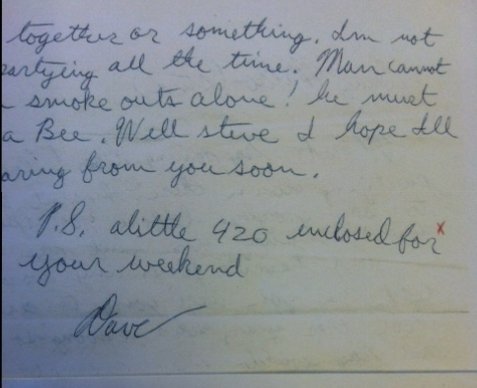 together or something. Im not
partying all the time. Man cannot
smoke outs alone! he must
a Bee. Well steve I hope Ill
from you soon.
P.S. alittle 420 enclosed for x
your weekend
Dave